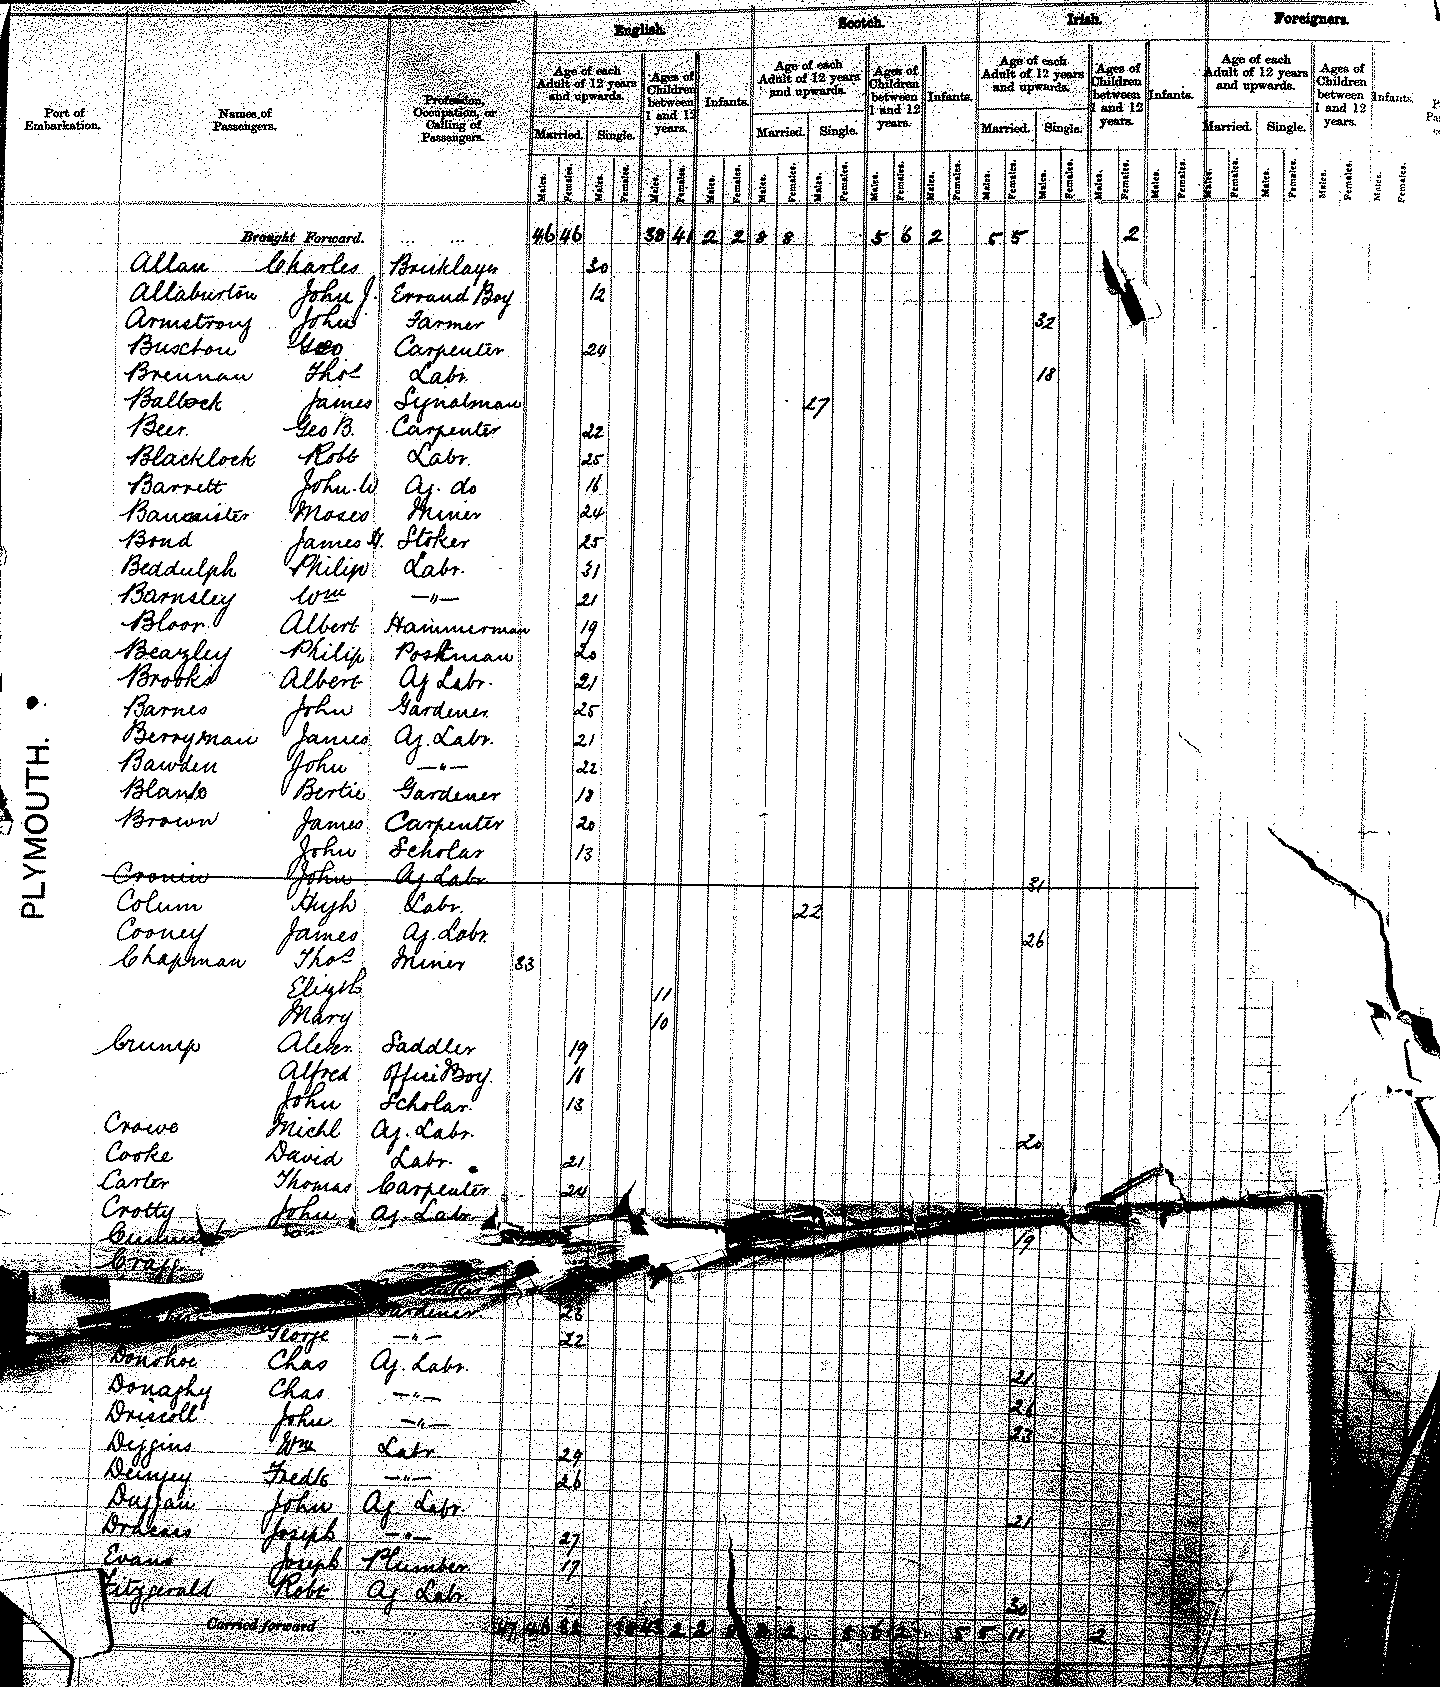 English. Scotch. Irish. Foreigners.
Port of Embarkation. Names of Passengers. Profession, Occupation, or Calling of Passengers.
Age of each Adult of 12 years and upwards. Ages of Children between 1 and 12 years. Infants. Age of each Adult of 12 years and upwards. Ages of Children between 1 and 12 years. Infants. Age of each Adult of 12 years and upwards. Ages of Children between 1 and 12 years. Infants. Age of each Adult of 12 years and upwards. Ages of Children between 1 and 12 years. Infants.
Married. Single. Married. Single. Married. Single. Married. Single.
Males. Females. Males. Females. Males. Females. Males. Females. Males. Females. Males. Females. Males. Females. Males. Females. Males. Females. Males. Females. Males. Females. Males. Females. Males. Females. Males. Females. Males. Females. Males. Females.
Brought Forward. ... ... 46 46 38 41 2 2 8 8 5 6 2 5 5 2
Allan Charles Bricklayer 30
Allaburton John J. Errand Boy 12
Armstrong John Farmer 32
Buxton Geo Carpenter 24
Brennan Thos Labr. 18
Ballock James Synalman 27
Beer. Geo B. Carpenter 22
Blacklock Robt Labr. 25
Barrett John W Ag. do 16
Bannister Moses Miner 24
Bond James H. Stoker 25
Beddulph Philip Labr. 31
Barnsley Wm —"— 21
Bloor Albert Hammerman 19
Beazley Philip Postman 20
Brooks Albert Ag Labr. 21
Barnes John Gardener 25
Berryman James Ag. Labr. 21
Bawden John —"— 22
Bertie Gardener 18
Brown James Carpenter 20
John Scholar 13
Cronin John Ag Labr 31
Colum Hugh Labr. 22
Cooney James Ag. Labr. 26
Chapman Thos Miner 33
Elizth 11
Mary 10
Crump Alexr. Saddler 19
Alfred Office Boy. 16
John Scholar. 13
Crowe Michl Ag. Labr. 20
Cooke David Labr. 21
Carter Thomas Carpenter 24
Crotty John Ag Labr
19
Gardener 23
George —"— 22
Donohoe Chas Ag. Labr. 21
Donaghy Chas —"—
Driscoll John —"— 23
Diggins Wm Labr 29
Fredk —"— 26
Duggan John Ag. Labr. 21
Joseph —"— 27
Evans Joseph Plumber 17
Fitzgerald Robt Ag Labr. 30
Carried forward 47 46 2 2 5 5 11 2
PLYMOUTH.